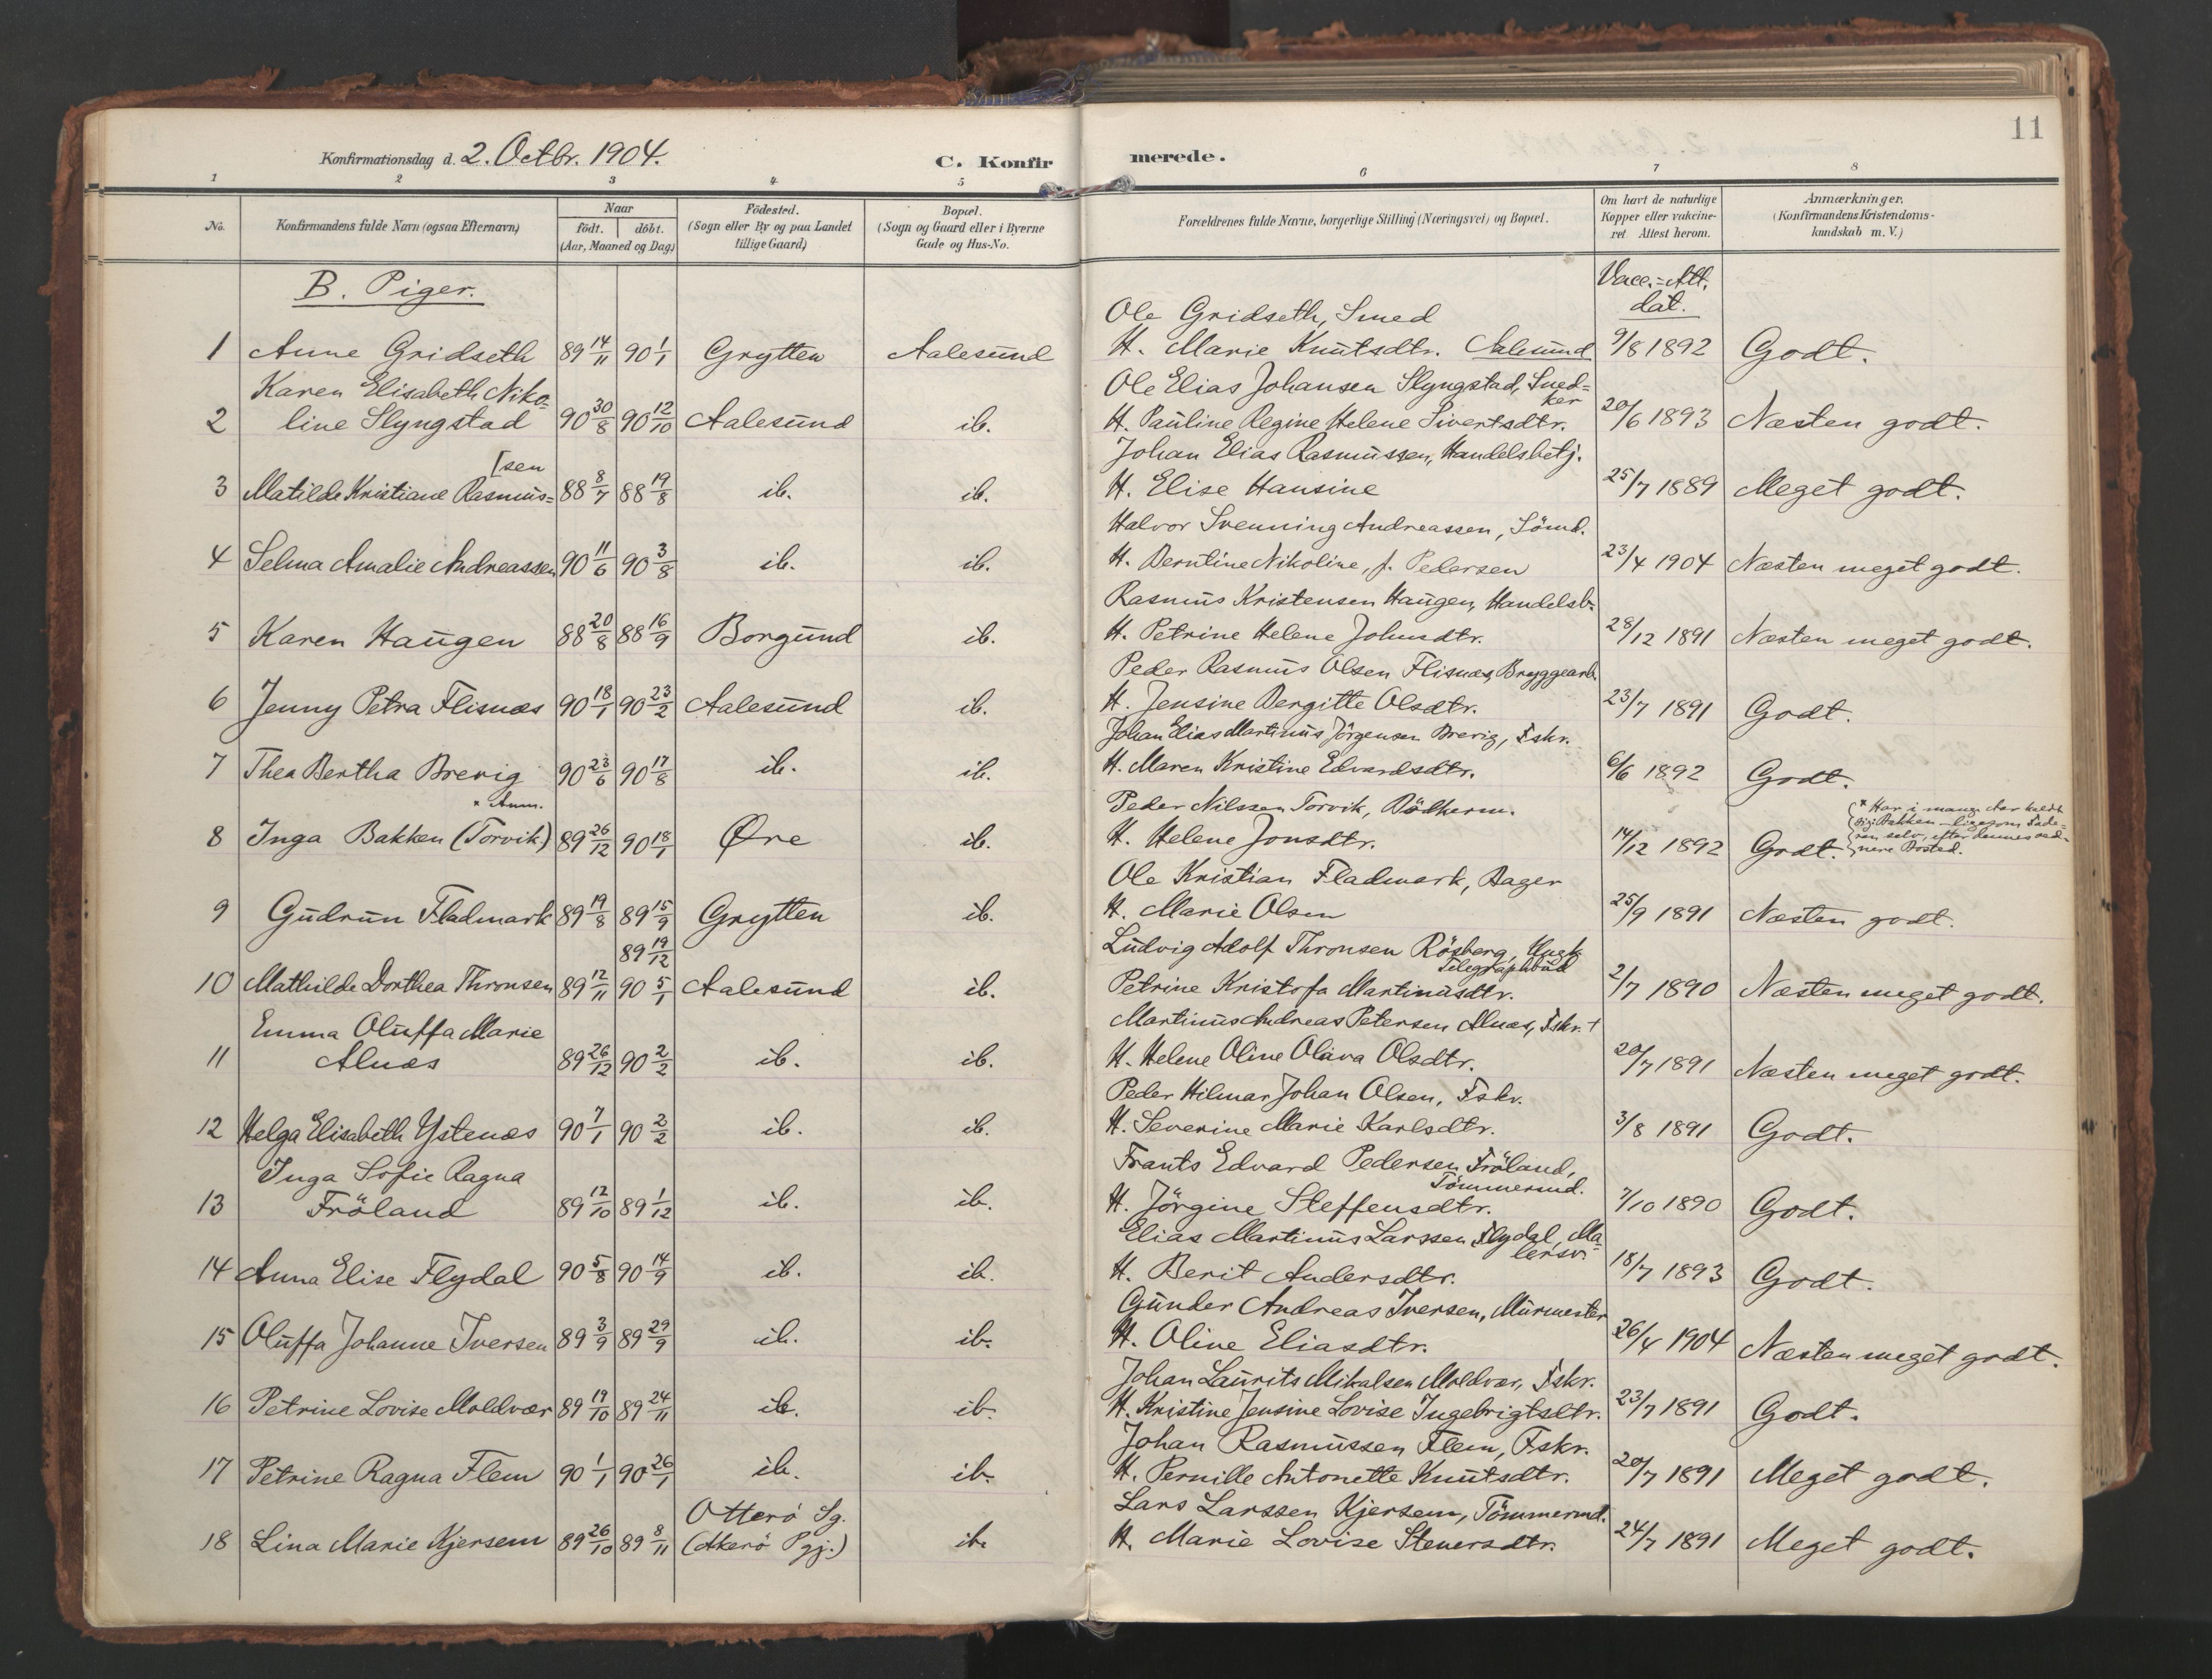 11
Konfirmationsdag d. 2. Octbr. 1904.
C. Konfir merede.
1 2 3 4 5 6 7 8
No.
Konfirmandens fulde Navn (ogsaa Efternavn)
Naar
födt. döbt.
(Aar, Maaned og Dag)
Födested.
(Sogn eller By og paa Landet
tillige Gaard)
Bopæl.
(Sogn og Gaard eller i Byerne
Gade og Hus-No.
Forældrenes fulde Navne, borgerlige Stilling (Næringsvei) og Bopæl.
Om havt de naturlige
Kopper eller vakcine-
ret Attest herom.
Anmærkninger.
(Konfirmandens Kristendoms-
kundskab m. V.)
B. Piger.
Vacc.=Att.
dat.
Ole Gridseth, Smed
1 Anne Gridseth 89 14/11 90 1/1 Grytten Aalesund H. Marie Knutsdtr. Aalesund 9/8 1892 Godt.
Karen Elisabeth Niko- Ole Elias Johansen Slyngstad, Sned=
ker
2 line Slyngstad 90 30/8 90 12/10 Aalesund ib. H. Pauline Regine Helene Sivertsdtr. 20/6 1893 Næsten godt.
[sen Johan Elias Rasmussen, Handelsbetj.
3 Matilde Kristiane Rasmus= 88 8/7 88 19/8 ib. ib. H. Elise Hansine 25/7 1889 Meget godt.
Halvor Svenning Andreassen, Sömd.
4 Selma Amalie Andreassen 90 11/6 90 3/8 ib. ib. H. Berntine Nikoline, f. Pedersen 23/4 1904 Næsten meget godt.
Rasmus Kristensen Haugen, Handelsb.
5 Karen Haugen 88 20/8 88 16/9 Borgund ib. H. Petrine Helene Johnsdtr. 28/12 1891 Næsten meget godt.
Peder Rasmus Olsen Flisnæs, Bryggearb.
6 Jenny Petra Flisnæs 90 18/1 90 23/2 Aalesund ib. H. Jensine Bergitte Olsdtr. 23/7 1891 Godt.
Johan Elias Martinus Jörgensen Brevig, Fskr.
7 Thea Bertha Brevig 90 23/6 90 17/8 ib. ib. H. Maren Kristine Edvardsdtr. 6/6 1892 Godt.
* Anm. Peder Nilssen Torvik, Bödkerm.
* Har i mange Aar kaldt
sig: Bakken – ligesom Fade-
ren selv, efter dennes
nere Bosted.
8 Inga Bakken (Torvik) 89 26/12 90 18/1 Øre ib. H. Helene Jonsdtr. 14/12 1892 Godt.
Ole Kristian Fladmark, Bager
9 Gudrun Fladmark 89 19/8 89 15/9 Grytten ib. H. Marie Olsen 25/9 1891 Næsten godt.
89 19/12 Ludvig Adolf Thronsen Rösberg, Ungk.
Telegraphbud
10 Mathilde Dorthea Thronsen 89 12/11 90 5/1 Aalesund ib. Petrine Kristofa Martinusdtr. 2/7 1890 Næsten meget godt.
Emma Oluffa Marie Martinus Andreas Petersen Alnæs, Fskr. +
11 Alnæs 89 26/12 90 2/2 ib. ib. H. Helene Oline Olava Olsdtr. 20/7 1891 Næsten meget godt.
Peder Hilmar Johan Olsen, Fskr.
12 Helga Elisabeth Ystenæs 90 7/1 90 2/2 ib. ib. H. Severine Marie Karlsdtr. 3/8 1891 Godt.
Inga Sofie Ragna Frants Edvard Pedersen Fröland,
Tömmermd.
13 Fröland 89 12/10 89 1/12 ib. ib. H. Jörgine Steffensdtr. 7/10 1890 Godt.
Elias Martinus Larssen Flydal, Ma=
lersv.
14 Anna Elise Flydal 90 5/8 90 14/9 ib. ib. H. Berit Andersdtr. 18/7 1893 Godt.
Gunder Andreas Iversen, Murmester
15 Oluffa Johanne Iversen 89 3/9 89 29/9 ib. ib. H. Oline Eliasdtr. 26/4 1904 Næsten meget godt.
Johan Laurits Mikalsen Moldvær, Fskr.
16 Petrine Lovise Moldvær 89 19/10 89 24/11 ib. ib. H. Kristine Jensine Lovise Ingebrigtsdtr. 23/7 1891 Godt.
Johan Rasmussen Flem, Fskr.
17 Petrine Ragna Flem 90 1/1 90 26/1 ib. ib. H. Pernille Antonette Knutsdtr. 20/7 1891 Meget godt.
Otterö Sg. Lars Larssen Kjersem, Tömmermd.
18 Lina Marie Kjersem 89 26/10 89 8/11 (Akerö Pgj.) ib. H. Marie Lovise Stenersdtr. 24/7 1891 Meget godt.